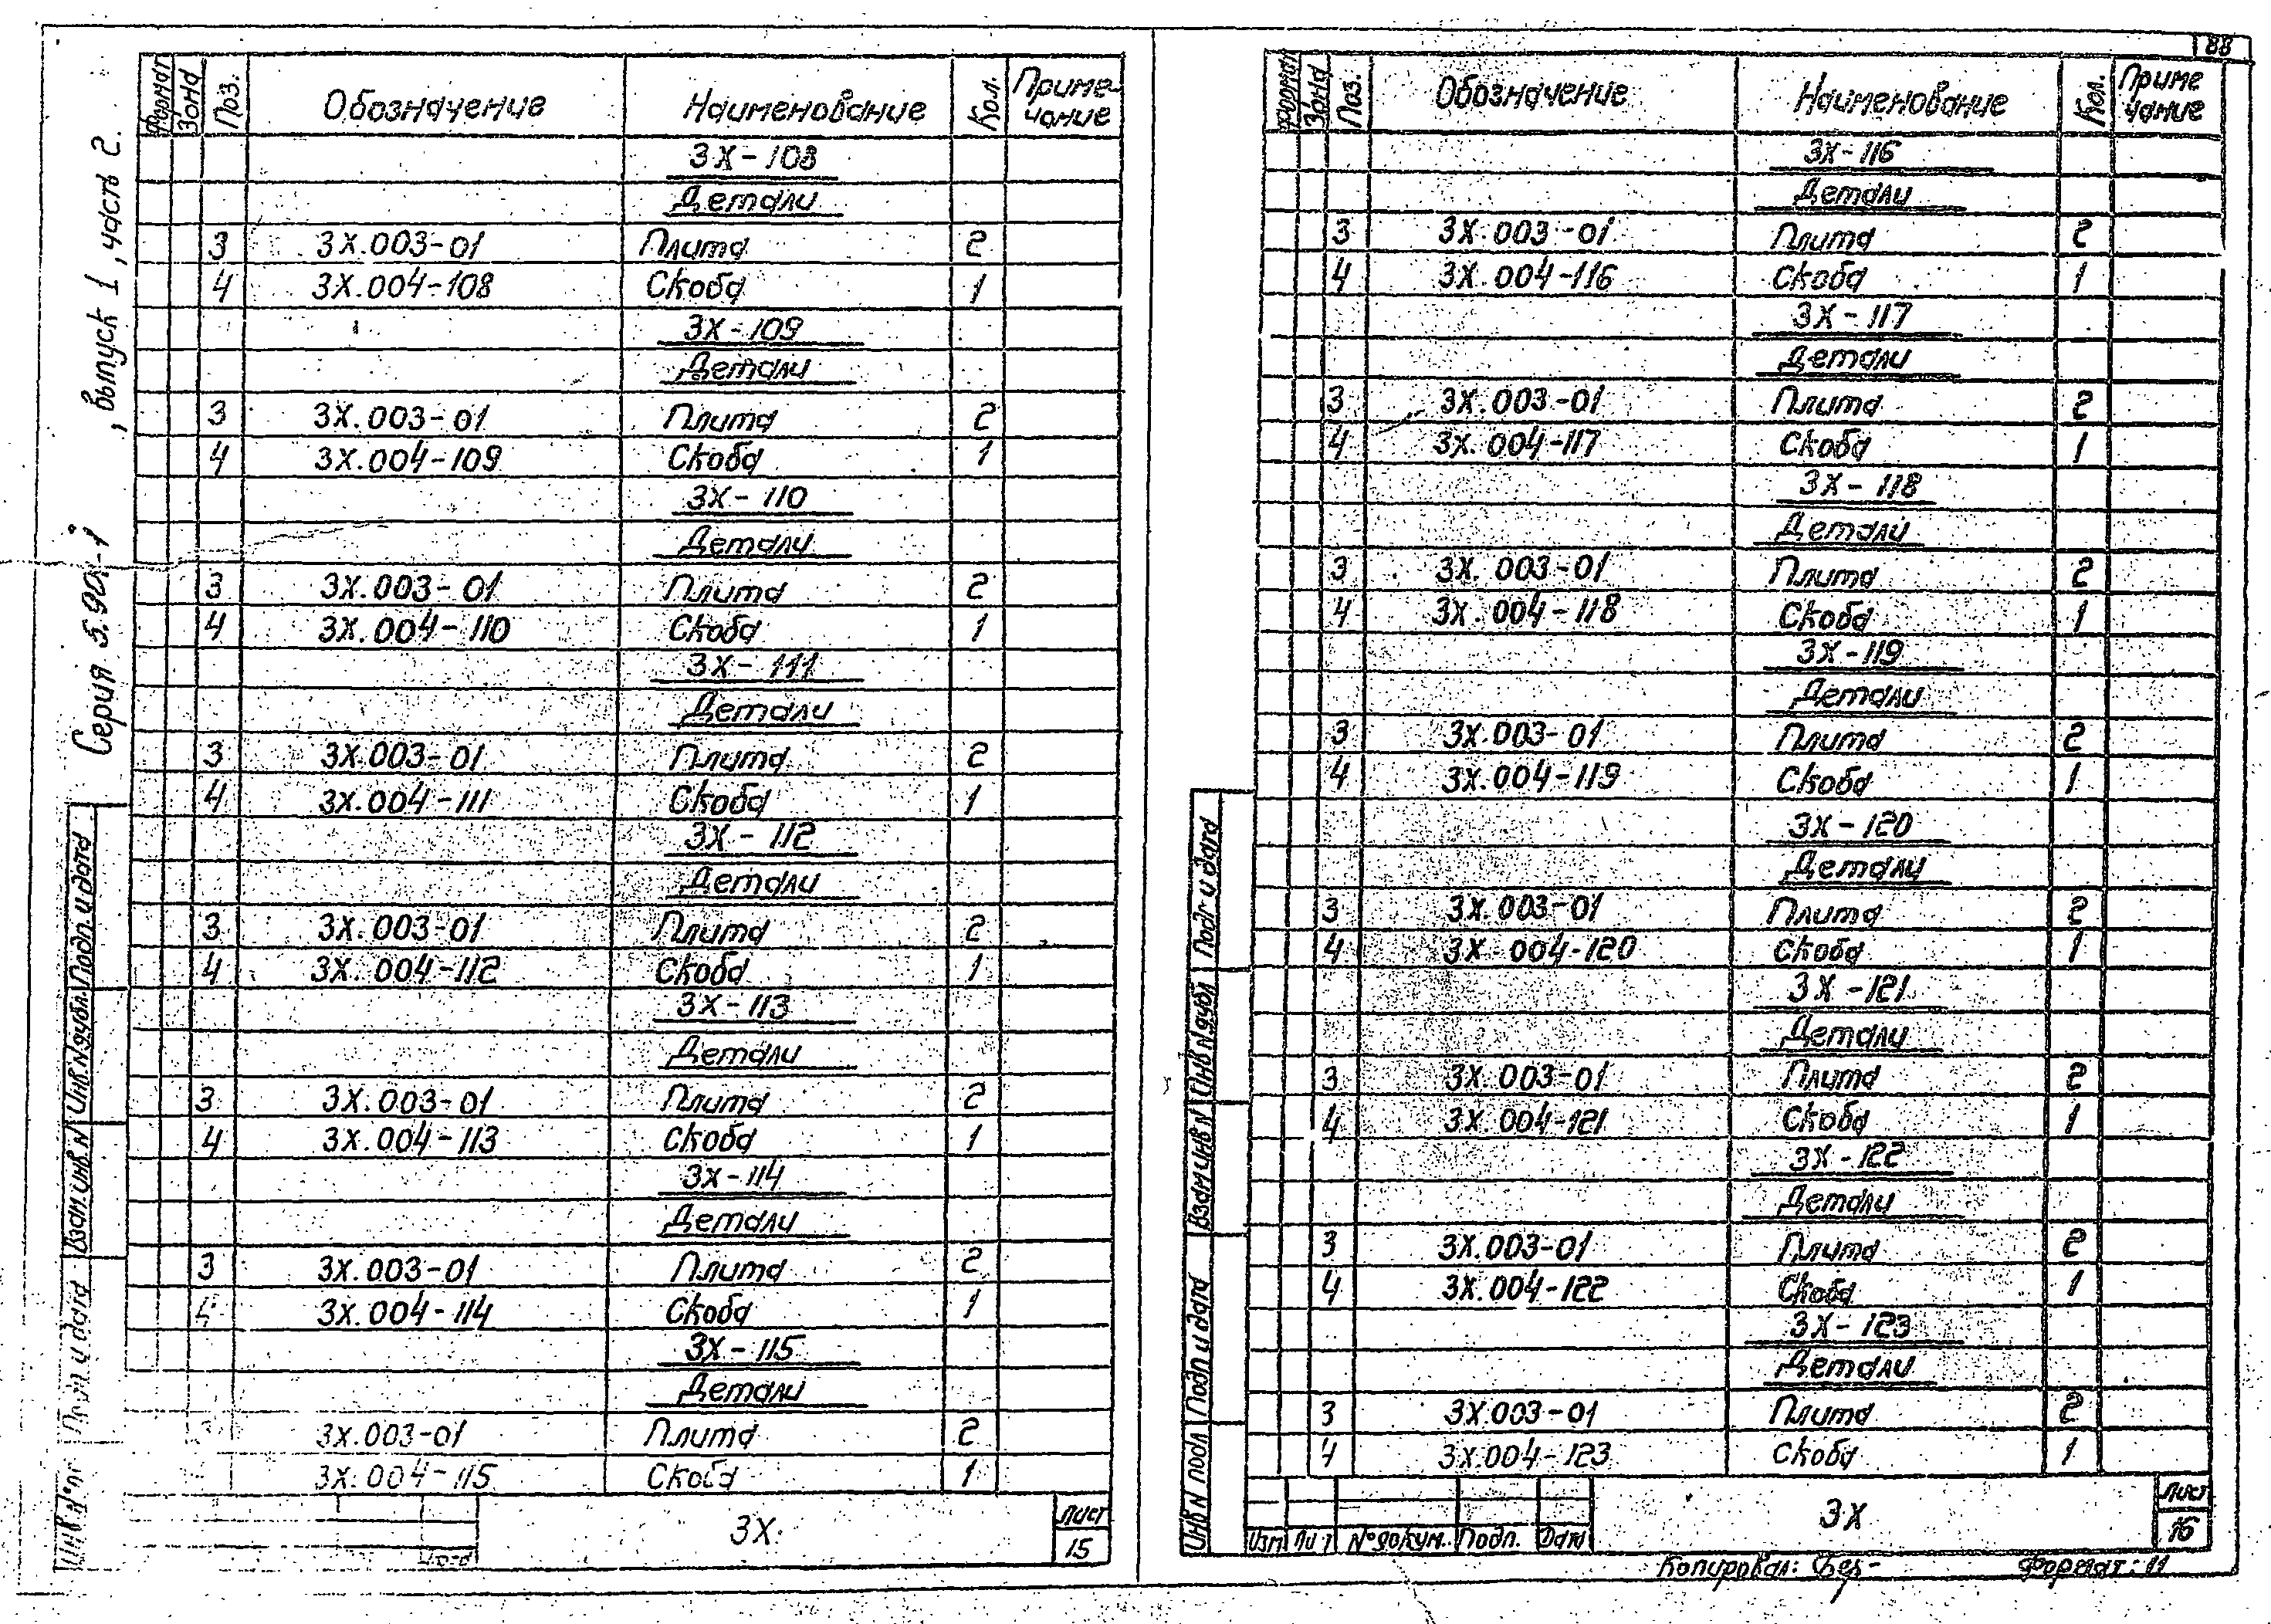 88
Серия 5.901-1 , выпуск 1 , часть 2.
Формат Зона Поз. Обозначение Наименование Кол. Приме-
чание
3Х-108
Детали
3 3Х.003-01 Плита 2
4 3Х.004-108 Скоба 1
3Х-109
Детали
3 3Х.003-01 Плита 2
4 3Х.004-109 Скоба 1
3Х-110
Детали
3 3Х.003-01 Плита 2
4 3Х.004-110 Скоба 1
3Х-111
Детали
3 3Х.003-01 Плита 2
4 3Х.004-111 Скоба 1
3Х-112
Детали
3 3Х.003-01 Плита 2
4 3Х.004-112 Скоба 1
3Х-113
Детали
3 3Х.003-01 Плита 2
4 3Х.004-113 Скоба 1
3Х-114
Детали
3 3Х.003-01 Плита 2
3Х.004-114 Скоба 1
3Х-115
Детали
3Х.003-01 Плита 2
3Х.004-115 Скоба 1
Подп. и дата
Инв.N дубл.
Взам. инв. N
Подп. и дата
3Х.
Лист
15
Формат Зона Поз. Обозначение Наименование Кол. Приме
чание
3Х-116
Детали
3 3Х.003-01 Плита 2
4 3Х.004-116 Скоба 1
3Х-117
Детали
3 3Х.003-01 Плита 2
4 3Х.004-117 Скоба 1
3Х-118
Детали
3 3Х.003-01 Плита 2
4 3Х.004-118 Скоба 1
3Х-119
Детали
3 3Х.003-01 Плита 2
4 3Х.004-119 Скоба 1
3Х-120
Детали
3 3Х.003-01 Плита 2
4 3Х-004-120 Скоба 1
3Х-121
Детали
3 3Х.003-01 Плита 2
4 3Х.004-121 Скоба 1
3Х-122
Детали
3 3Х.003-01 Плита 2
4 3Х.004-122 Скоба 1
3Х-123
Детали
3 3Х.003-01 Плита 2
4 3Х.004-123 Скоба 1
Подп и дата
Инв N дубл
Взам инв N
Подп и дата
Инв N подл
Изм Ли т N° докум. Подп. Дата
3Х
Лист
16
Копировал: Формат: 11